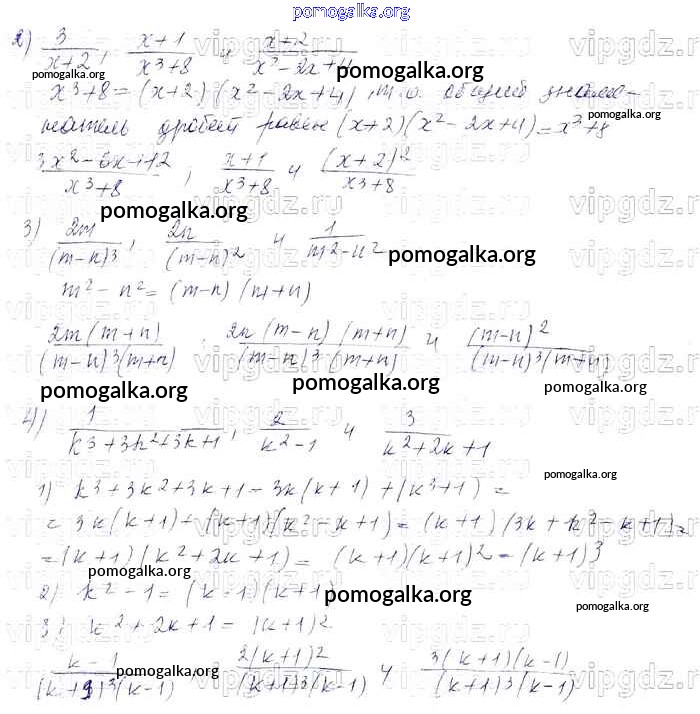 pomogalka.org
2) 3/(x+2), (x+1)/(x³+8) и (x+2)/(x²-2x+4)
pomogalka.org
x³+8 = (x+2)(x²-2x+4), т.о. общий знаме-
pomogalka.org
натель дробей равен (x+2)(x²-2x+4) = x³+8
(3x²-6x+12)/(x³+8), (x+1)/(x³+8) и (x+2)²/(x³+8)
pomogalka.org
3) 2m/(m-n)³, 2n/(m-n)² и 1/(m²-n²)
pomogalka.org
m²-n² = (m-n)(m+n)
2m(m+n)/((m-n)³(m+n)), 2n(m-n)(m+n)/((m-n)³(m+n)) и (m-n)²/((m-n)³(m+n))
pomogalka.org pomogalka.org pomogalka.org
4) 1/(k³+3k²+3k+1), 2/(k²-1) и 3/(k²+2k+1)
pomogalka.org
1) k³+3k²+3k+1 = 3k(k+1)+(k³+1) =
= 3k(k+1)+(k+1)(k²-k+1) = (k+1)(3k+k²-k+1) =
= (k+1)(k²+2k+1) = (k+1)(k+1)² = (k+1)³
pomogalka.org
2) k²-1 = (k-1)(k+1)
pomogalka.org pomogalka.org
3) k²+2k+1 = (k+1)²
(k-1)/((k+1)³(k-1)), 2(k+1)²/((k+1)³(k-1)) и 3(k+1)(k-1)/((k+1)³(k-1))
pomogalka.org pomogalka.org
vipgdz.ru